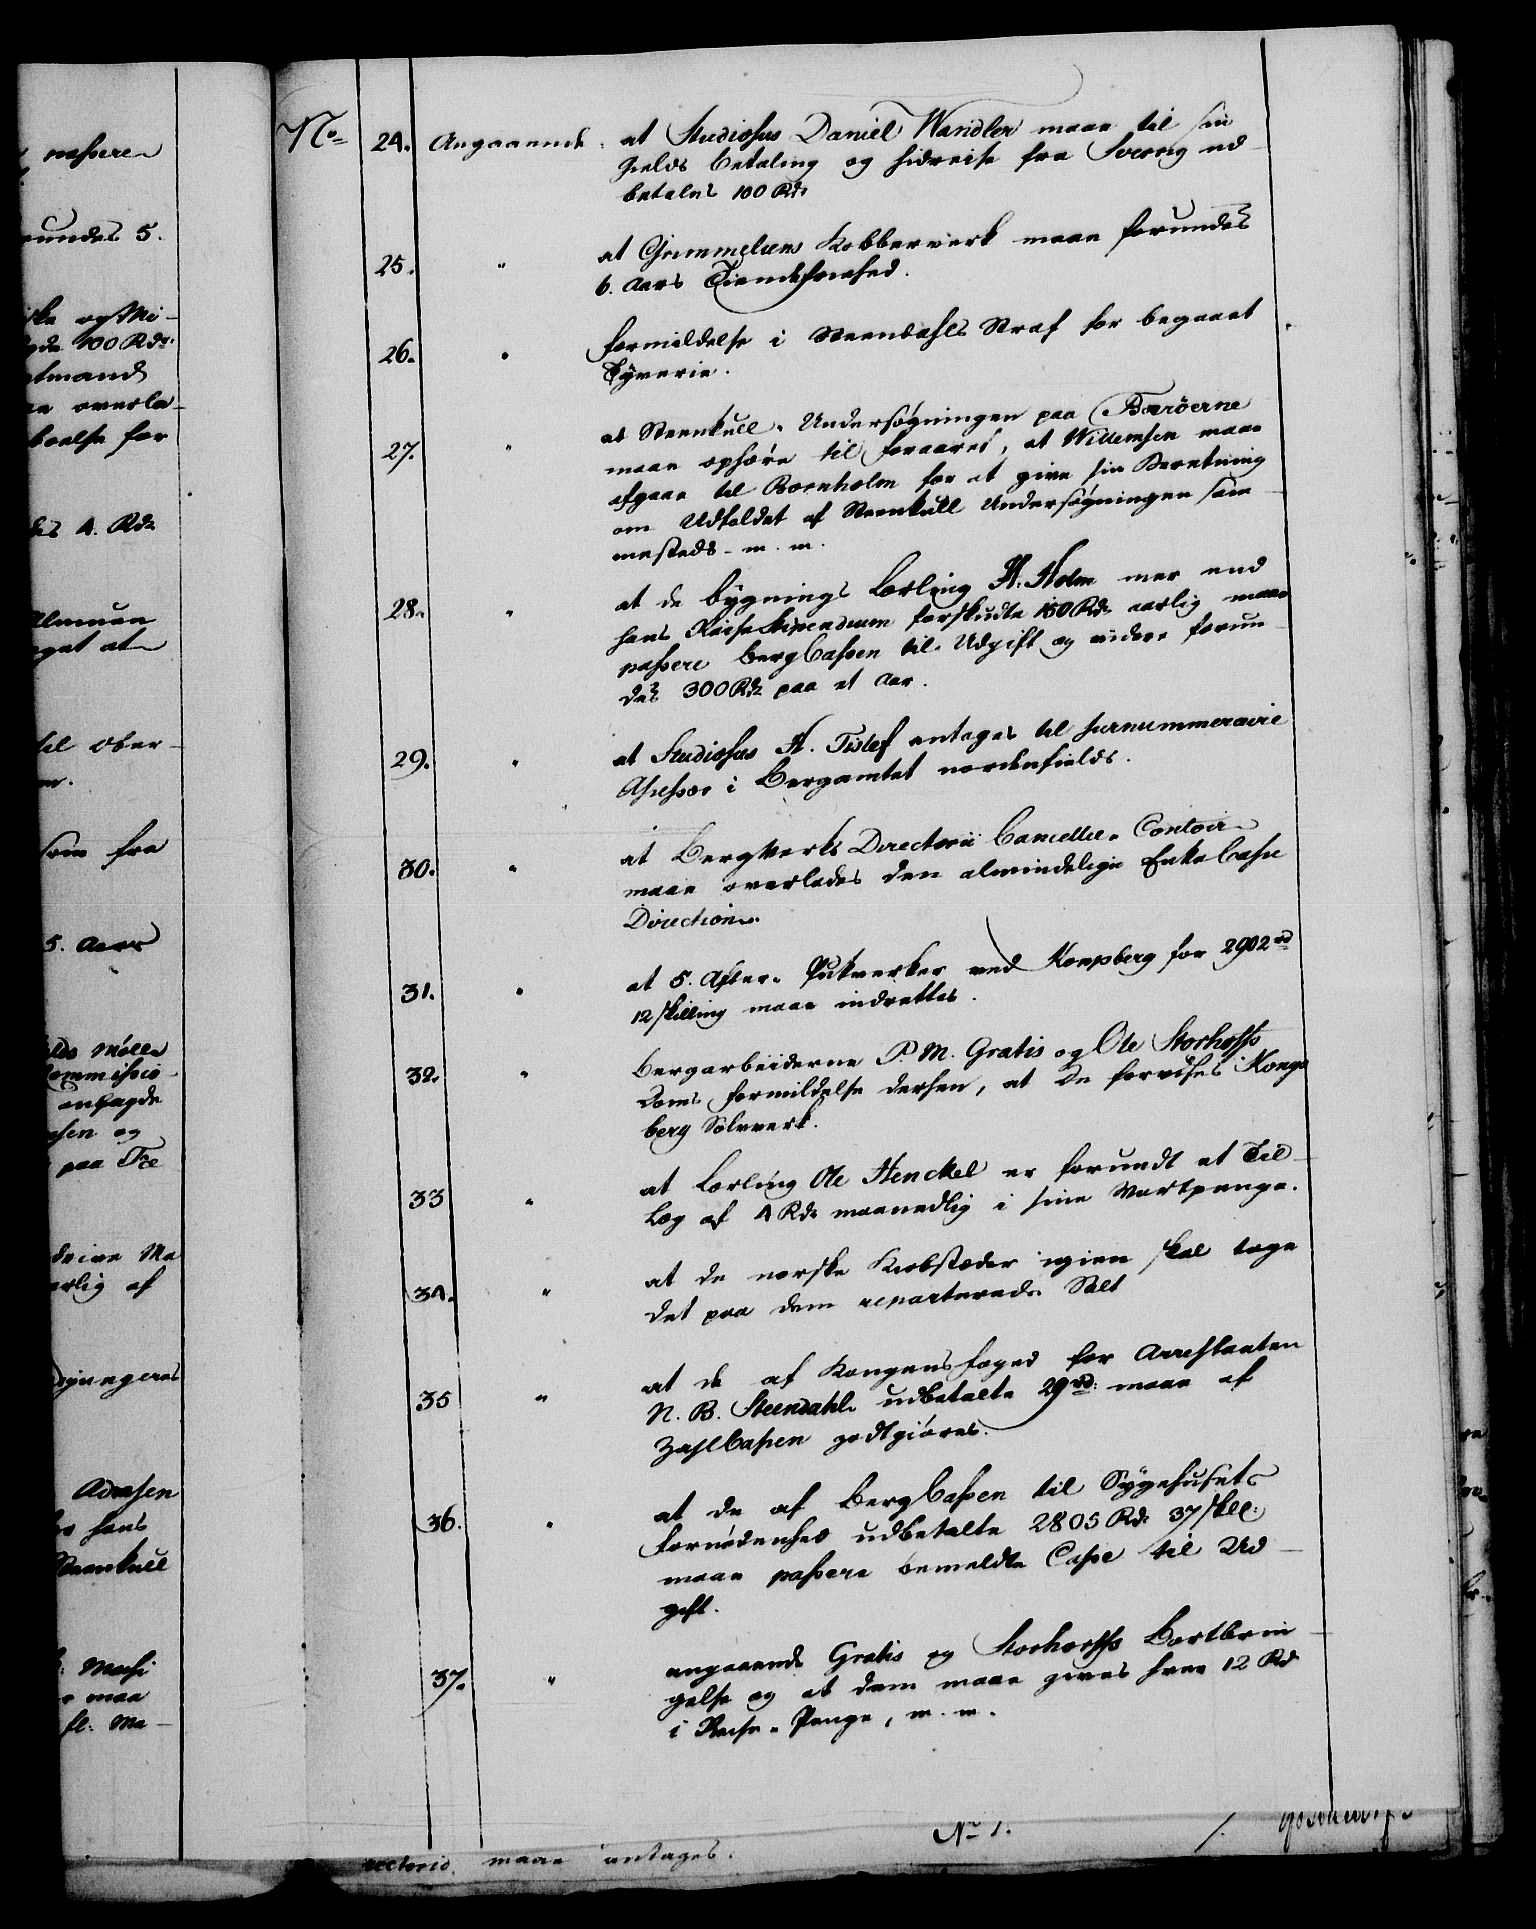 passere
undes 5.
ske og Mi-
gde 100 Rdr
tmand
overla-
boelse for
des 4. Rdr
Almuen
get at
til Ober-
som fra
5. Aar
Mölle
Commissio-
ansagde
sen og
paa Fre
drive Ma
arlig af
Adresen
hans
Steenkull
maa
fl. Ma-
No 24. Angaaende at Studiosus Daniel Wandler maae til sin
Gields Betaling og hidreise fra Sverrig ud-
betales 100 Rdr
25. " at Grimmeliens Kobberverk maae forundes
6. Aars Tiendefriehed.
26. " Formildelse i Steendahls Straf for begaaet
Tyverie.
27. " at Steenkull-Undersøgningen paa Færöerne
maae ophøre til Foraaret, at Willemsen maae
afgaae til Bornholm for at give sin Beretning
om Udfaldet af Steenkull Undersøgningen sam-
mesteds - m. m.
28. " at de bygnings Lærling H. Holm mer end
hans Reise Stipendium forskudte 150 Rdr aarlig maae
passere BergCassen til Udgift og videre forun-
des 300 Rdr paa et Aar.
29. " at Studiosus H. antages til surnummerairie
Assessor i Bergamtet nordenfields.
30. " at BergVerks Directorii Cancellie-Contoir
maae overlades den almindelige EnkeCasse
Direction.
31. " at 5. After-Pukverker ved Kongsberg for 2902 rd
12 skilling maae indrettes.
32. " Bergarbeiderne P. M. Gratis og Ole Storhoffs
Doms Formildelse derhen, at de forvises Kongs
berg Sølvverk.
33 " at Lærling Ole Henckel er forundt et Til-
læg af 4 Rdr maanedlig i sine Vartpenge.
34. " at de norske Kiøbstæder igien skal tage
det paa dem reparterede Salt
35 " at de af Kongens foged for Arrestanten
N. B. Steendahl udbetalte 29 rd: maae af
ZahlCassen godtgiøres.
36. " at de af BergCassen til Sygehusets
Fornødenhed udbetalte 2805 Rdr 37 skll:
maae passere bemeldte Casse til Ud-
gift.
37. " angaaende Gratis og Storhoffs Bortbrin-
gelse og at dem maae gives hver 12 Rd
i Reise-Penge, m. m.
No 1.
maae antages.